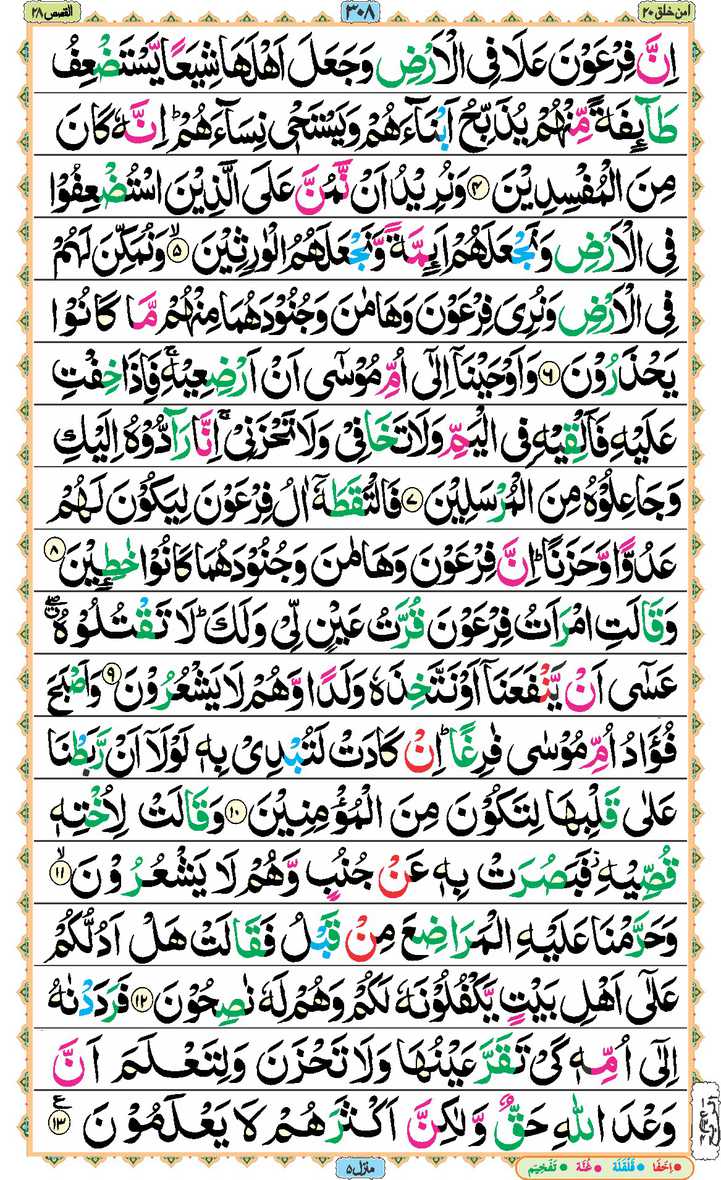 القصص ٢٨
٣٠٨
امن خلق ٢٠
اِنَّ فِرْعَوْنَ عَلَا فِی الْاَرْضِ وَجَعَلَ اَهْلَهَا شِیَعًا یَّسْتَضْعِفُ
طَآىِٕفَةً مِّنْهُمْ یُذَبِّحُ اَبْنَآءَهُمْ وَیَسْتَحْیٖ نِسَآءَهُمْ ؕ اِنَّهٗ كَانَ
مِنَ الْمُفْسِدِیْنَ ۴ وَنُرِیْدُ اَنْ نَّمُنَّ عَلَی الَّذِیْنَ اسْتُضْعِفُوْا
فِی الْاَرْضِ وَنَجْعَلَهُمْ اَىِٕمَّةً وَّنَجْعَلَهُمُ الْوٰرِثِیْنَ ۙ ۵ وَنُمَكِّنَ لَهُمْ
فِی الْاَرْضِ وَنُرِیَ فِرْعَوْنَ وَهَامٰنَ وَجُنُوْدَهُمَا مِنْهُمْ مَّا كَانُوْا
یَحْذَرُوْنَ ۶ وَاَوْحَیْنَاۤ اِلٰۤی اُمِّ مُوْسٰۤی اَنْ اَرْضِعِیْهِ ۚ فَاِذَا خِفْتِ
عَلَیْهِ فَاَلْقِیْهِ فِی الْیَمِّ وَلَا تَخَافِیْ وَلَا تَحْزَنِیْ ۚ اِنَّا رَآدُّوْهُ اِلَیْكِ
وَجَاعِلُوْهُ مِنَ الْمُرْسَلِیْنَ ۷ فَالْتَقَطَهٗۤ اٰلُ فِرْعَوْنَ لِیَكُوْنَ لَهُمْ
عَدُوًّا وَّحَزَنًا ؕ اِنَّ فِرْعَوْنَ وَهَامٰنَ وَجُنُوْدَهُمَا كَانُوْا خٰطِـِٕیْنَ ۸
وَقَالَتِ امْرَاَتُ فِرْعَوْنَ قُرَّتُ عَیْنٍ لِّیْ وَلَكَ ؕ لَا تَقْتُلُوْهُ ۖۗ
عَسٰۤی اَنْ یَّنْفَعَنَاۤ اَوْ نَتَّخِذَهٗ وَلَدًا وَّهُمْ لَا یَشْعُرُوْنَ ۹ وَاَصْبَحَ
فُؤَادُ اُمِّ مُوْسٰی فٰرِغًا ؕ اِنْ كَادَتْ لَتُبْدِیْ بِهٖ لَوْلَاۤ اَنْ رَّبَطْنَا
عَلٰی قَلْبِهَا لِتَكُوْنَ مِنَ الْمُؤْمِنِیْنَ ۱۰ وَقَالَتْ لِاُخْتِهٖ
قُصِّیْهِ ؗ فَبَصُرَتْ بِهٖ عَنْ جُنُبٍ وَّهُمْ لَا یَشْعُرُوْنَ ۙ ۱۱
وَحَرَّمْنَا عَلَیْهِ الْمَرَاضِعَ مِنْ قَبْلُ فَقَالَتْ هَلْ اَدُلُّكُمْ
عَلٰۤی اَهْلِ بَیْتٍ یَّكْفُلُوْنَهٗ لَكُمْ وَهُمْ لَهٗ نٰصِحُوْنَ ۱۲ فَرَدَدْنٰهُ
اِلٰۤی اُمِّهٖ كَیْ تَقَرَّ عَیْنُهَا وَلَا تَحْزَنَ وَلِتَعْلَمَ اَنَّ
وَعْدَ اللّٰهِ حَقٌّ وَّلٰكِنَّ اَكْثَرَهُمْ لَا یَعْلَمُوْنَ ۱۳ ع
منزل ۵
• اِخْفَا • قَلْقَلَة • غُنَّة • تَفْخِیْم